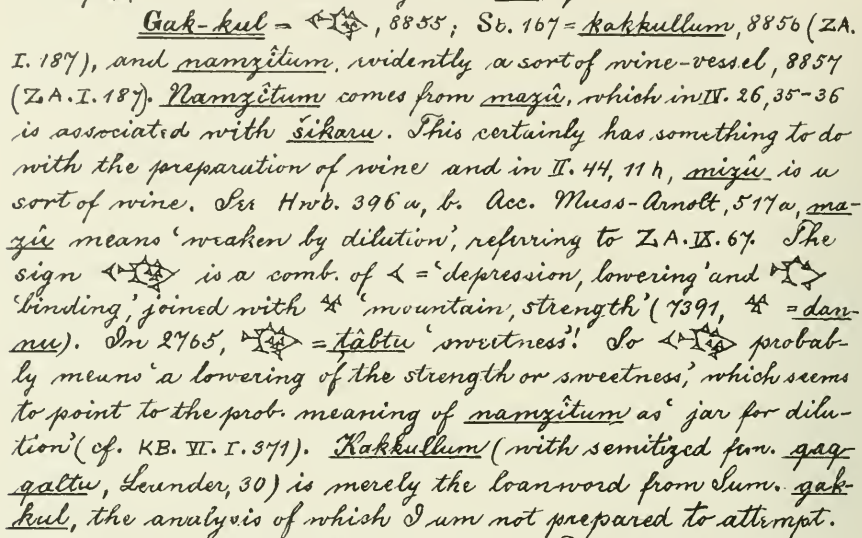 Gak-kul = , 8855; Sb. 167 = kakkullum, 8856 (ZA.
I. 187), and namzîtum, evidently a sort of wine-vessel, 8857
(ZA. I. 187). Namzîtum comes from mazû, which in IV. 26, 35-36
is associated with šikaru. This certainly has something to do
with the preparation of wine and in II. 44, 11 h, mizû is a
sort of wine. See Hwb. 396 a, b. Acc. Muss-Arnolt, 517a, ma-
zû means 'weaken by dilution', referring to ZA. IX. 67. The
sign is a comb. of = 'depression, lowering' and
'binding,' joined with 'mountain, strength' (7391, = dan-
nu). In 2765, = ṭâbtu 'sweetness'! So probab-
ly means 'a lowering of the strength or sweetness,' which seems
to point to the prob. meaning of namzîtum as 'jar for dilu-
tion' (cf. KB. VI. I. 371). Kakkullum (with semitized fem. gag-
galtu, Leander, 30) is merely the loanword from Sum. gak-
kul, the analysis of which I am not prepared to attempt.